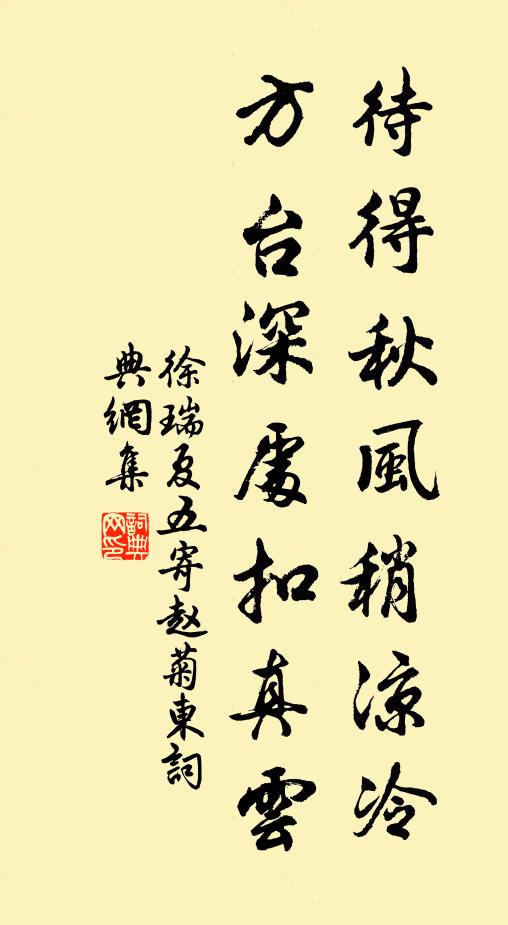 待得秋風稍涼冷
方台深處扣真雲
徐瑞夏五寄赵菊東詞
典網集
詞典
网印